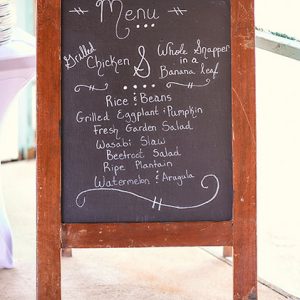 Menu
Grilled Chicken & Whole Snapper in a Banana leaf
Rice & Beans
Grilled Eggplant & Pumpkin
Fresh Garden Salad
Wasabi Slaw
Beetroot Salad
Ripe Plantain
Watermelon & Aragula